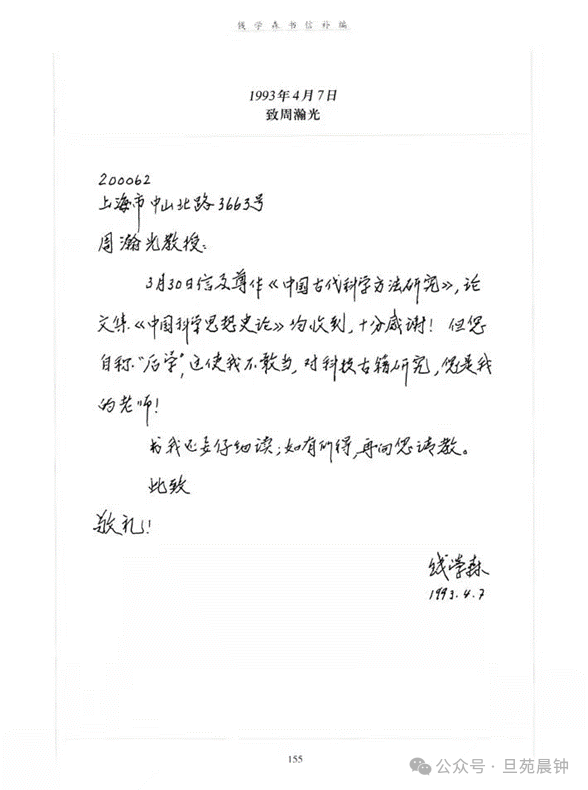 钱学森书信补编
1993年4月7日
致周瀚光
200062
上海市中山北路3663号
周瀚光教授:
3月30日信及尊作《中国古代科学方法研究》,论
文集《中国科学思想史论》均收到,十分感谢!但您
自称“后学”,这使我不敢当,对科技古籍研究,您是我
的老师!
书我还要仔细读;如有所得,再向您请教。
此致
敬礼!
钱学森
1993.4.7
155
公众号·旦苑晨钟